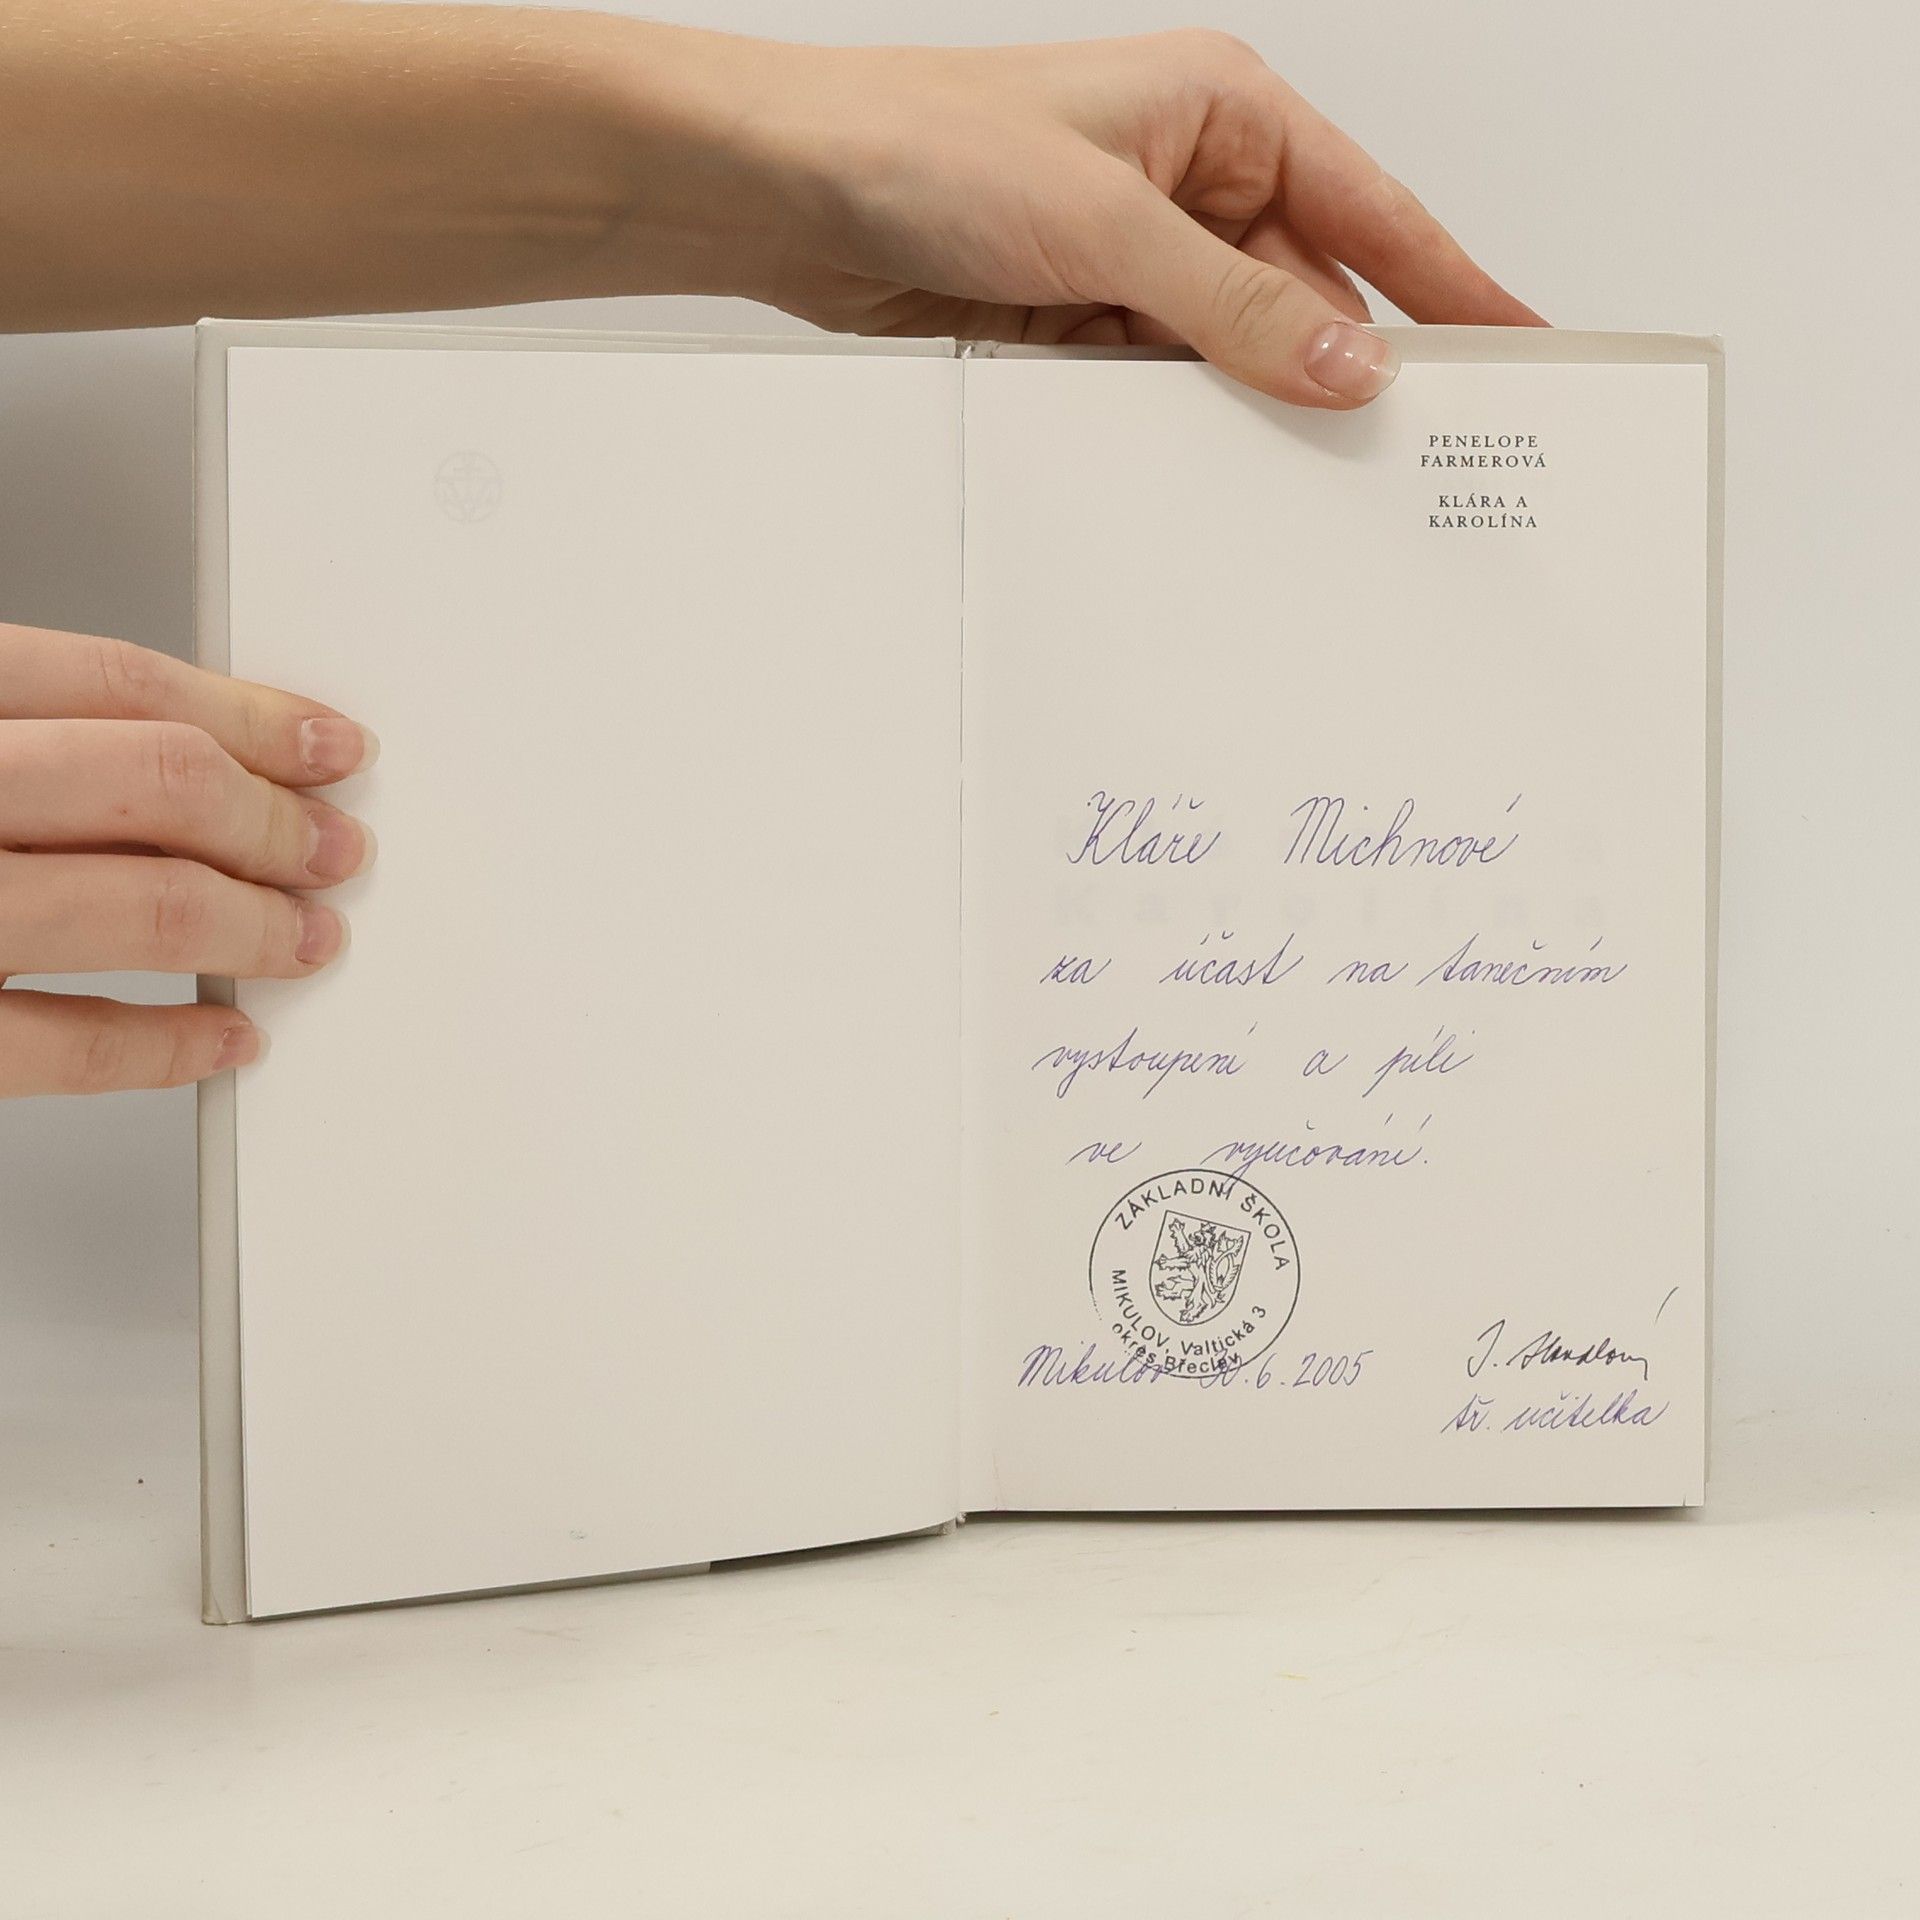 PENELOPE
FARMEROVÁ
KLÁRA A
KAROLÍNA
Kláře Michnové
za účast na tanečním
vystoupení a píli
ve vyučování.
ZÁKLADNÍ ŠKOLA
MIKULOV, Valtická 3
okres Břeclav
Mikulov 30.6.2005
J.
tř. učitelka